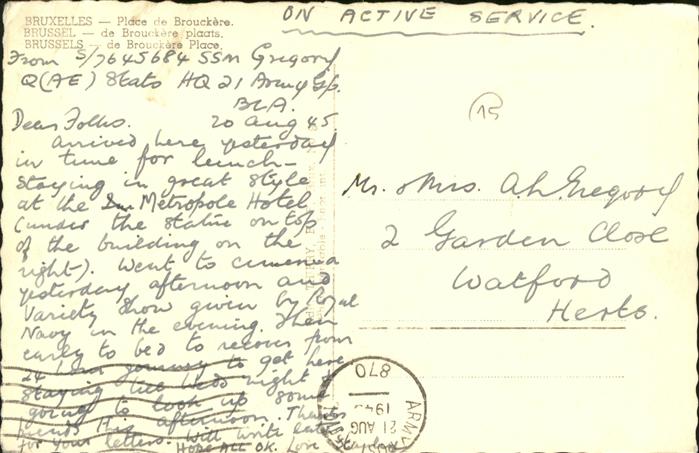 BRUXELLES — Place de Brouckère.
BRUSSEL — de Brouckère plaats.
BRUSSELS — de Brouckère Place.
ON ACTIVE SERVICE.
From S/7645684 SSM Gregory
Q(AE) Stats HQ 21 Army Gp.
BLA.
Dear Folks. 20 Aug 45
Arrived here yesterday
in time for lunch -
Staying in great style
at the Metropole Hotel
(under the statue on top
of the building on the
right). Went to cinema
yesterday afternoon and
Variety Show given by Royal
Navy in the evening. Then
early to bed to recover from
24 hour journey to get here
Staying till Weds night &
going to look up some
friends this afternoon. Thanks
for your letters. Will write later
Hope ALL OK. Love
15
Mr. & Mrs. A.L. Gregory
2 Garden Close
Watford
Herts.
870
21 AUG